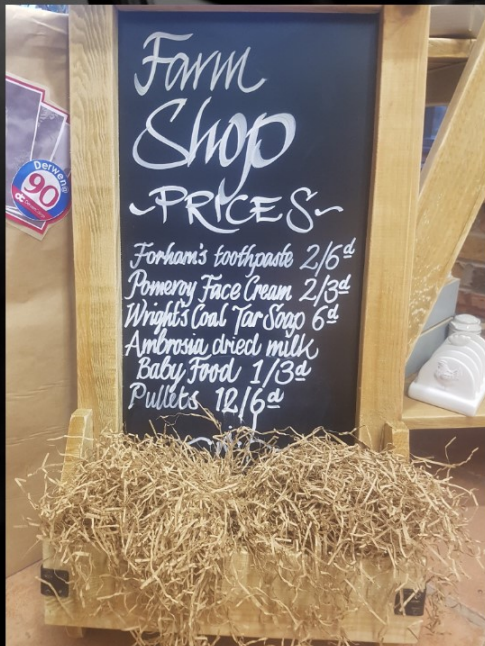 Farm
Shop
~PRICES~
Forham's toothpaste 2/6d
Pomeroy Face Cream 2/3d
Wright's Coal Tar Soap 6d
Ambrosia dried milk
Baby Food 1/3d
Pullets 12/6d
Derwen
90